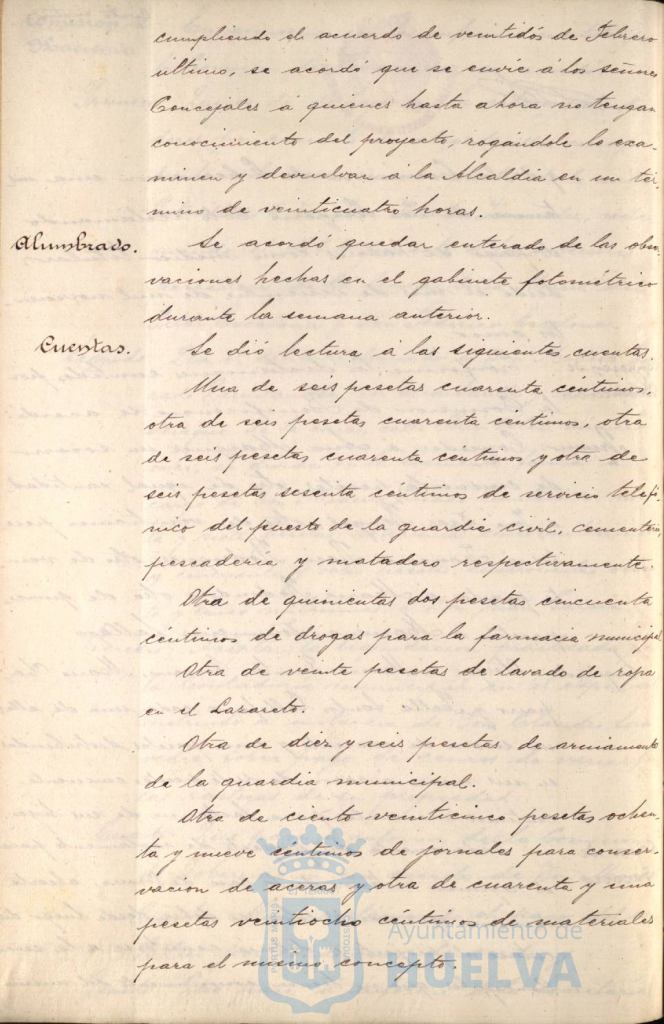 cumpliendo el acuerdo de veintidós de Febrero
último, se acordó que se envíe á los señores
Concejales á quienes hasta ahora no tengan
conocimiento del proyecto, rogándole lo exa-
minen y devuelvan á la Alcaldia en un tér-
mino de veinticuatro horas.
Alumbrado.
Se acordó quedar enterado de las obser-
vaciones hechas en el gabinete fotométrico
durante la semana anterior.
Cuentas.
Se dió lectura á las siguientes cuentas.
Una de seis pesetas cuarenta céntimos,
otra de seis pesetas cuarenta céntimos, otra
de seis pesetas cuarenta céntimos y otra de
seis pesetas sesenta céntimos de servicio telefó-
nico del puesto de la guardia civil, cementerio,
pescadería y matadero respectivamente.
Otra de quinientas dos pesetas cincuenta
céntimos de drogas para la farmacia municipal
Otra de veinte pesetas de lavado de ropa
en el Lazareto.
Otra de diez y seis pesetas de armamento
de la guardia municipal.
Otra de ciento veinticinco pesetas ochen-
ta y nueve céntimos de jornales para conser-
vacion de aceras y otra de cuarenta y una
pesetas veintiocho céntimos de materiales
para el mismo concepto.
Ayuntamiento de
HUELVA